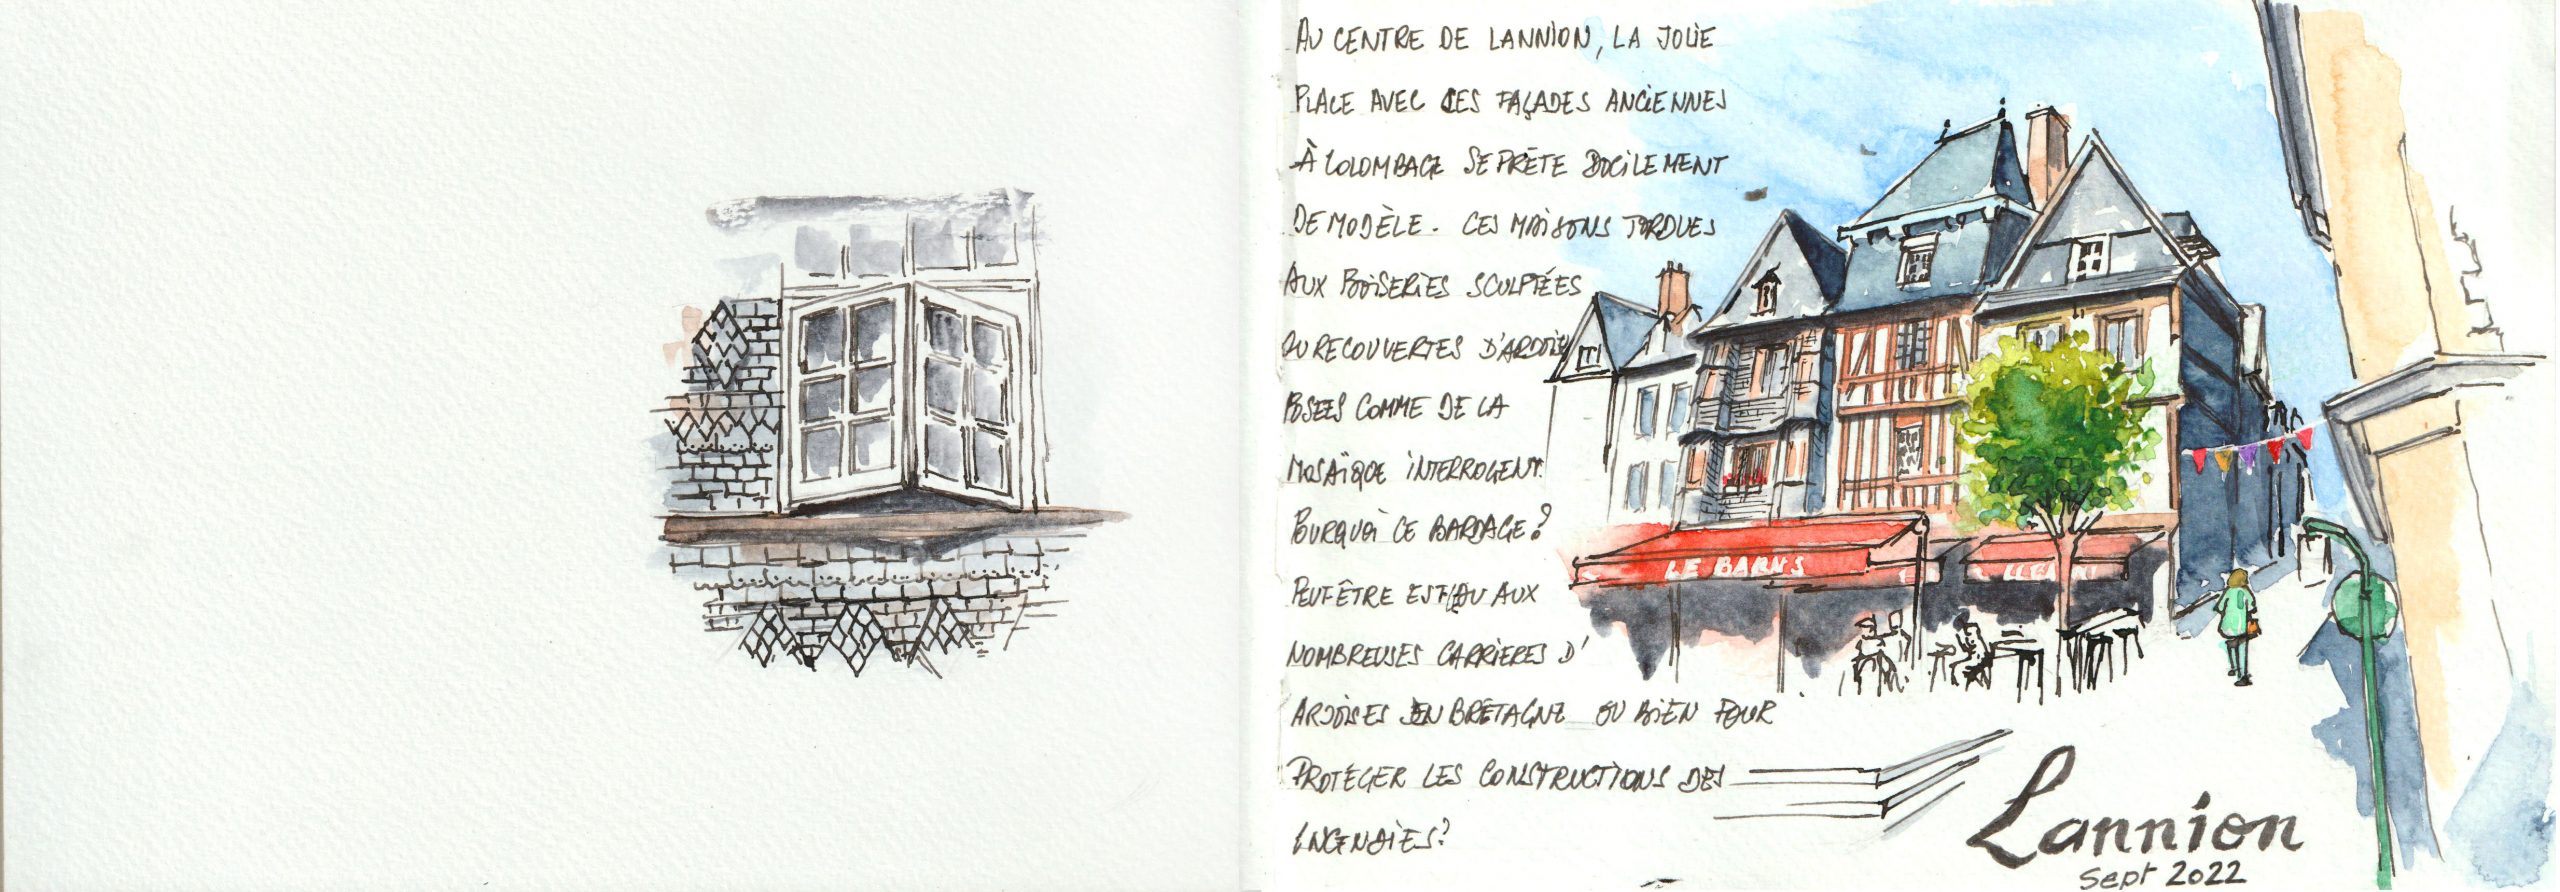 AU CENTRE DE LANNION, LA JOLIE
PLACE AVEC CES FAÇADES ANCIENNES
À COLOMBAGE SE PRÊTE DOCILEMENT
DE MODÈLE. CES MAISONS TORDUES
AUX BOISERIES SCULPTÉES
OU RECOUVERTES D'ARDOISE
POSEES COMME DE LA
MOSAÏQUE INTERROGENT.
POURQUOI CE BARDAGE?
PEUT ÊTRE EST AUX
NOMBREUSES CARRIERES D'
ARDOISES EN BRETAGNE OU BIEN POUR
PROTÉGER LES CONSTRUCTIONS DES
INCENDIES?
LE BARNS
Lannion
Sept 2022